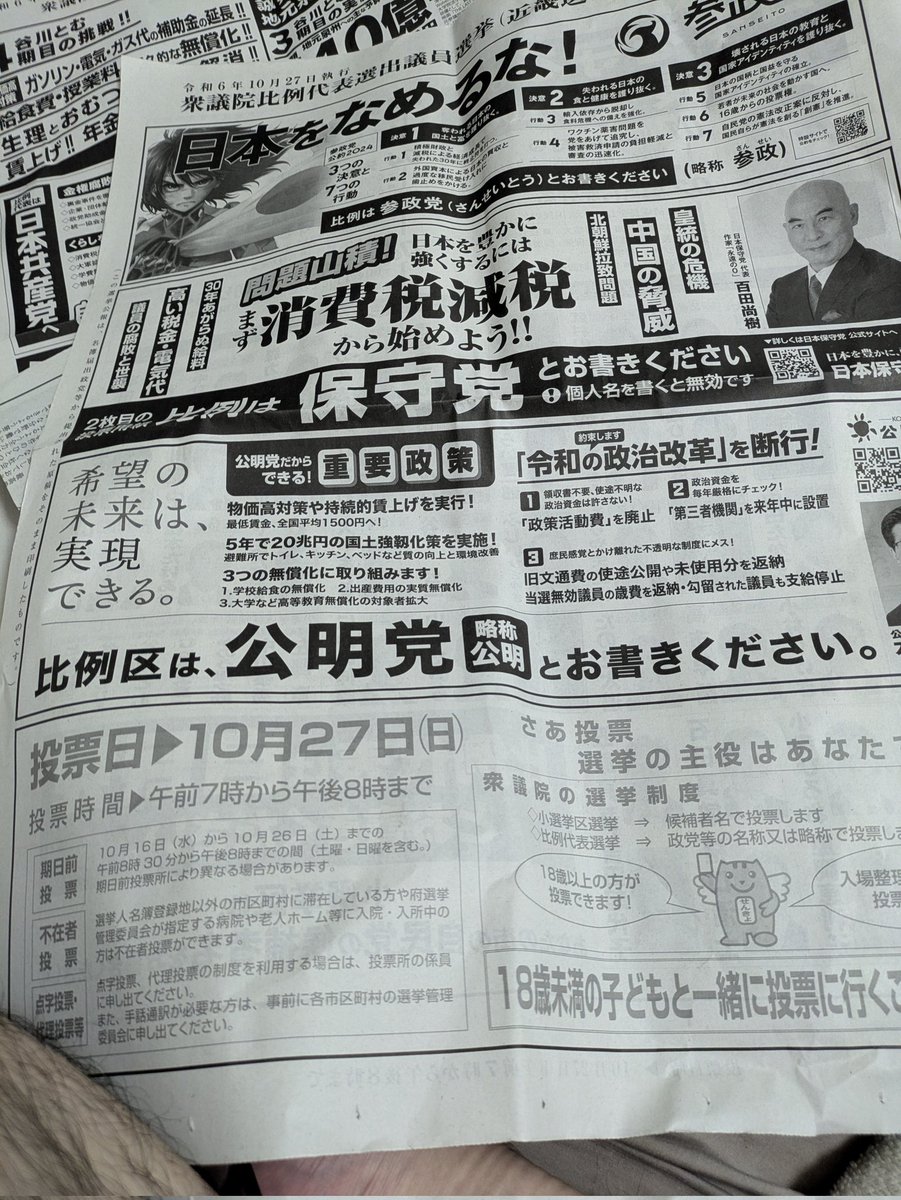 谷川とむ
期目の挑戦!!
ガソリン・電気・ガス代の補助金の延長!!
給食費・授業料
生理とおむつ
賃上げ!!
日本共産党へ
令和6年10月27日執行
衆議院比例代表選出議員選挙
日本をなめるな!
参政党
公約2024
3つの
決意と
7つの
行動
決意1
行動1
積極財政と
行動2
決意2
失われる日本の
食と健康を護り抜く。
行動3
輸入依存から脱却し
食料危機への備えを強化。
行動4
ワクチン薬害問題を
党をあげて追究し、
被害救済申請の負担軽減と
審査の迅速化。
決意3
壊される日本の教育と
国家アイデンティティを護り抜く。
行動5
日本の国柄と国益を守る
国家アイデンティティの確立。
行動6
若者が未来の社会を動かす国へ。
16歳からの投票権。
行動7
自民党の憲法改正案に反対し、
国民自らが憲法を創る「創憲」を推進。
SANSEITO
比例は 参政党(さんせいとう)とお書きください
(略称 参政)
さん せい
問題山積!
日本を豊かに
強くするには
まず消費税減税
から始めよう!!
30年あがらぬ給料
高い税金・電気代
議員の腐敗と世襲
皇統の危機
中国の脅威
北朝鮮拉致問題
日本保守党 代表
作家「永遠の0」
百田尚樹
▼詳しくは日本保守党 公式サイトへ
2枚目の
投票用紙
比例は
保守党
とお書きください
個人名を書くと無効です
希望の
未来は、
実現
できる。
公明党だから
できる!
重要政策
物価高対策や持続的賃上げを実行!
最低賃金、全国平均1500円へ!
5年で20兆円の国土強靱化策を実施!
避難所でトイレ、キッチン、ベッドなど質の向上と環境改善
3つの無償化に取り組みます!
1.学校給食の無償化 2.出産費用の実質無償化
3.大学など高等教育無償化の対象者拡大
約束します
「令和の政治改革」を断行!
1 領収書不要、使途不明な
政治資金は許さない!
「政策活動費」を廃止
2 政治資金を
毎年厳格にチェック!
「第三者機関」を来年中に設置
3 庶民感覚とかけ離れた不透明な制度にメス!
旧文通費の使途公開や未使用分を返納
当選無効議員の歳費を返納・勾留された議員も支給停止
比例区は、公明党 略称 公明 とお書きください。
投票日▶10月27日(日)
投票時間▶午前7時から午後8時まで
期日前
投票
10月16日(水)から10月26日(土)までの
午前8時30分から午後8時までの間(土曜・日曜を含む。)
期日前投票所により異なる場合があります。
不在者
投票
選挙人名簿登録地以外の市区町村に滞在している方や府選挙
管理委員会が指定する病院や老人ホーム等に入院・入所中の
方は不在者投票ができます。
点字投票・
代理投票等
点字投票、代理投票の制度を利用する場合は、投票所の係員
に申し出てください。
また、手話通訳が必要な方は、事前に各市区町村の選挙管理
委員会に申し出てください。
さあ投票
選挙の主役はあなた
衆議院の選挙制度
◇小選挙区選挙 ⇒ 候補者名で投票します
◇比例代表選挙 ⇒ 政党等の名称又は略称で投票しま
18歳以上の方が
投票できます!
せんきょ
入場整理
投票
18歳未満の子どもと一緒に投票に行くこ